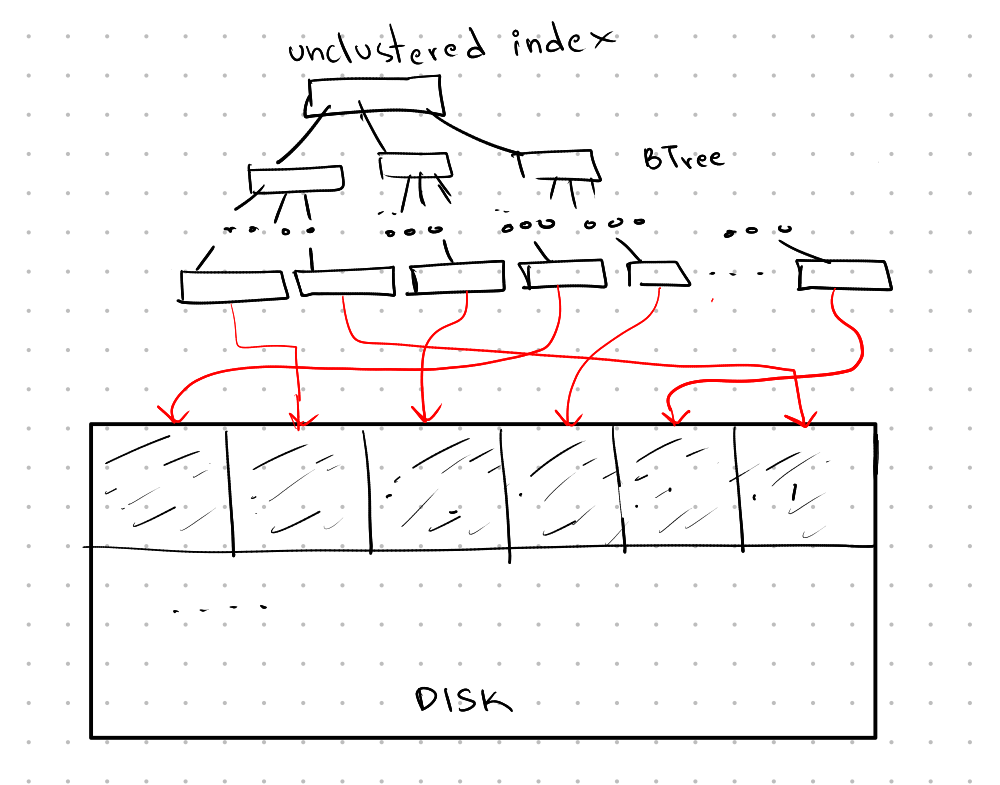 unclustered index
BTree
DISK